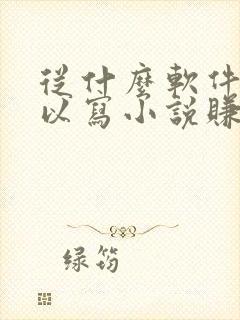 從什麼軟件
以寫小説賺
绿筠